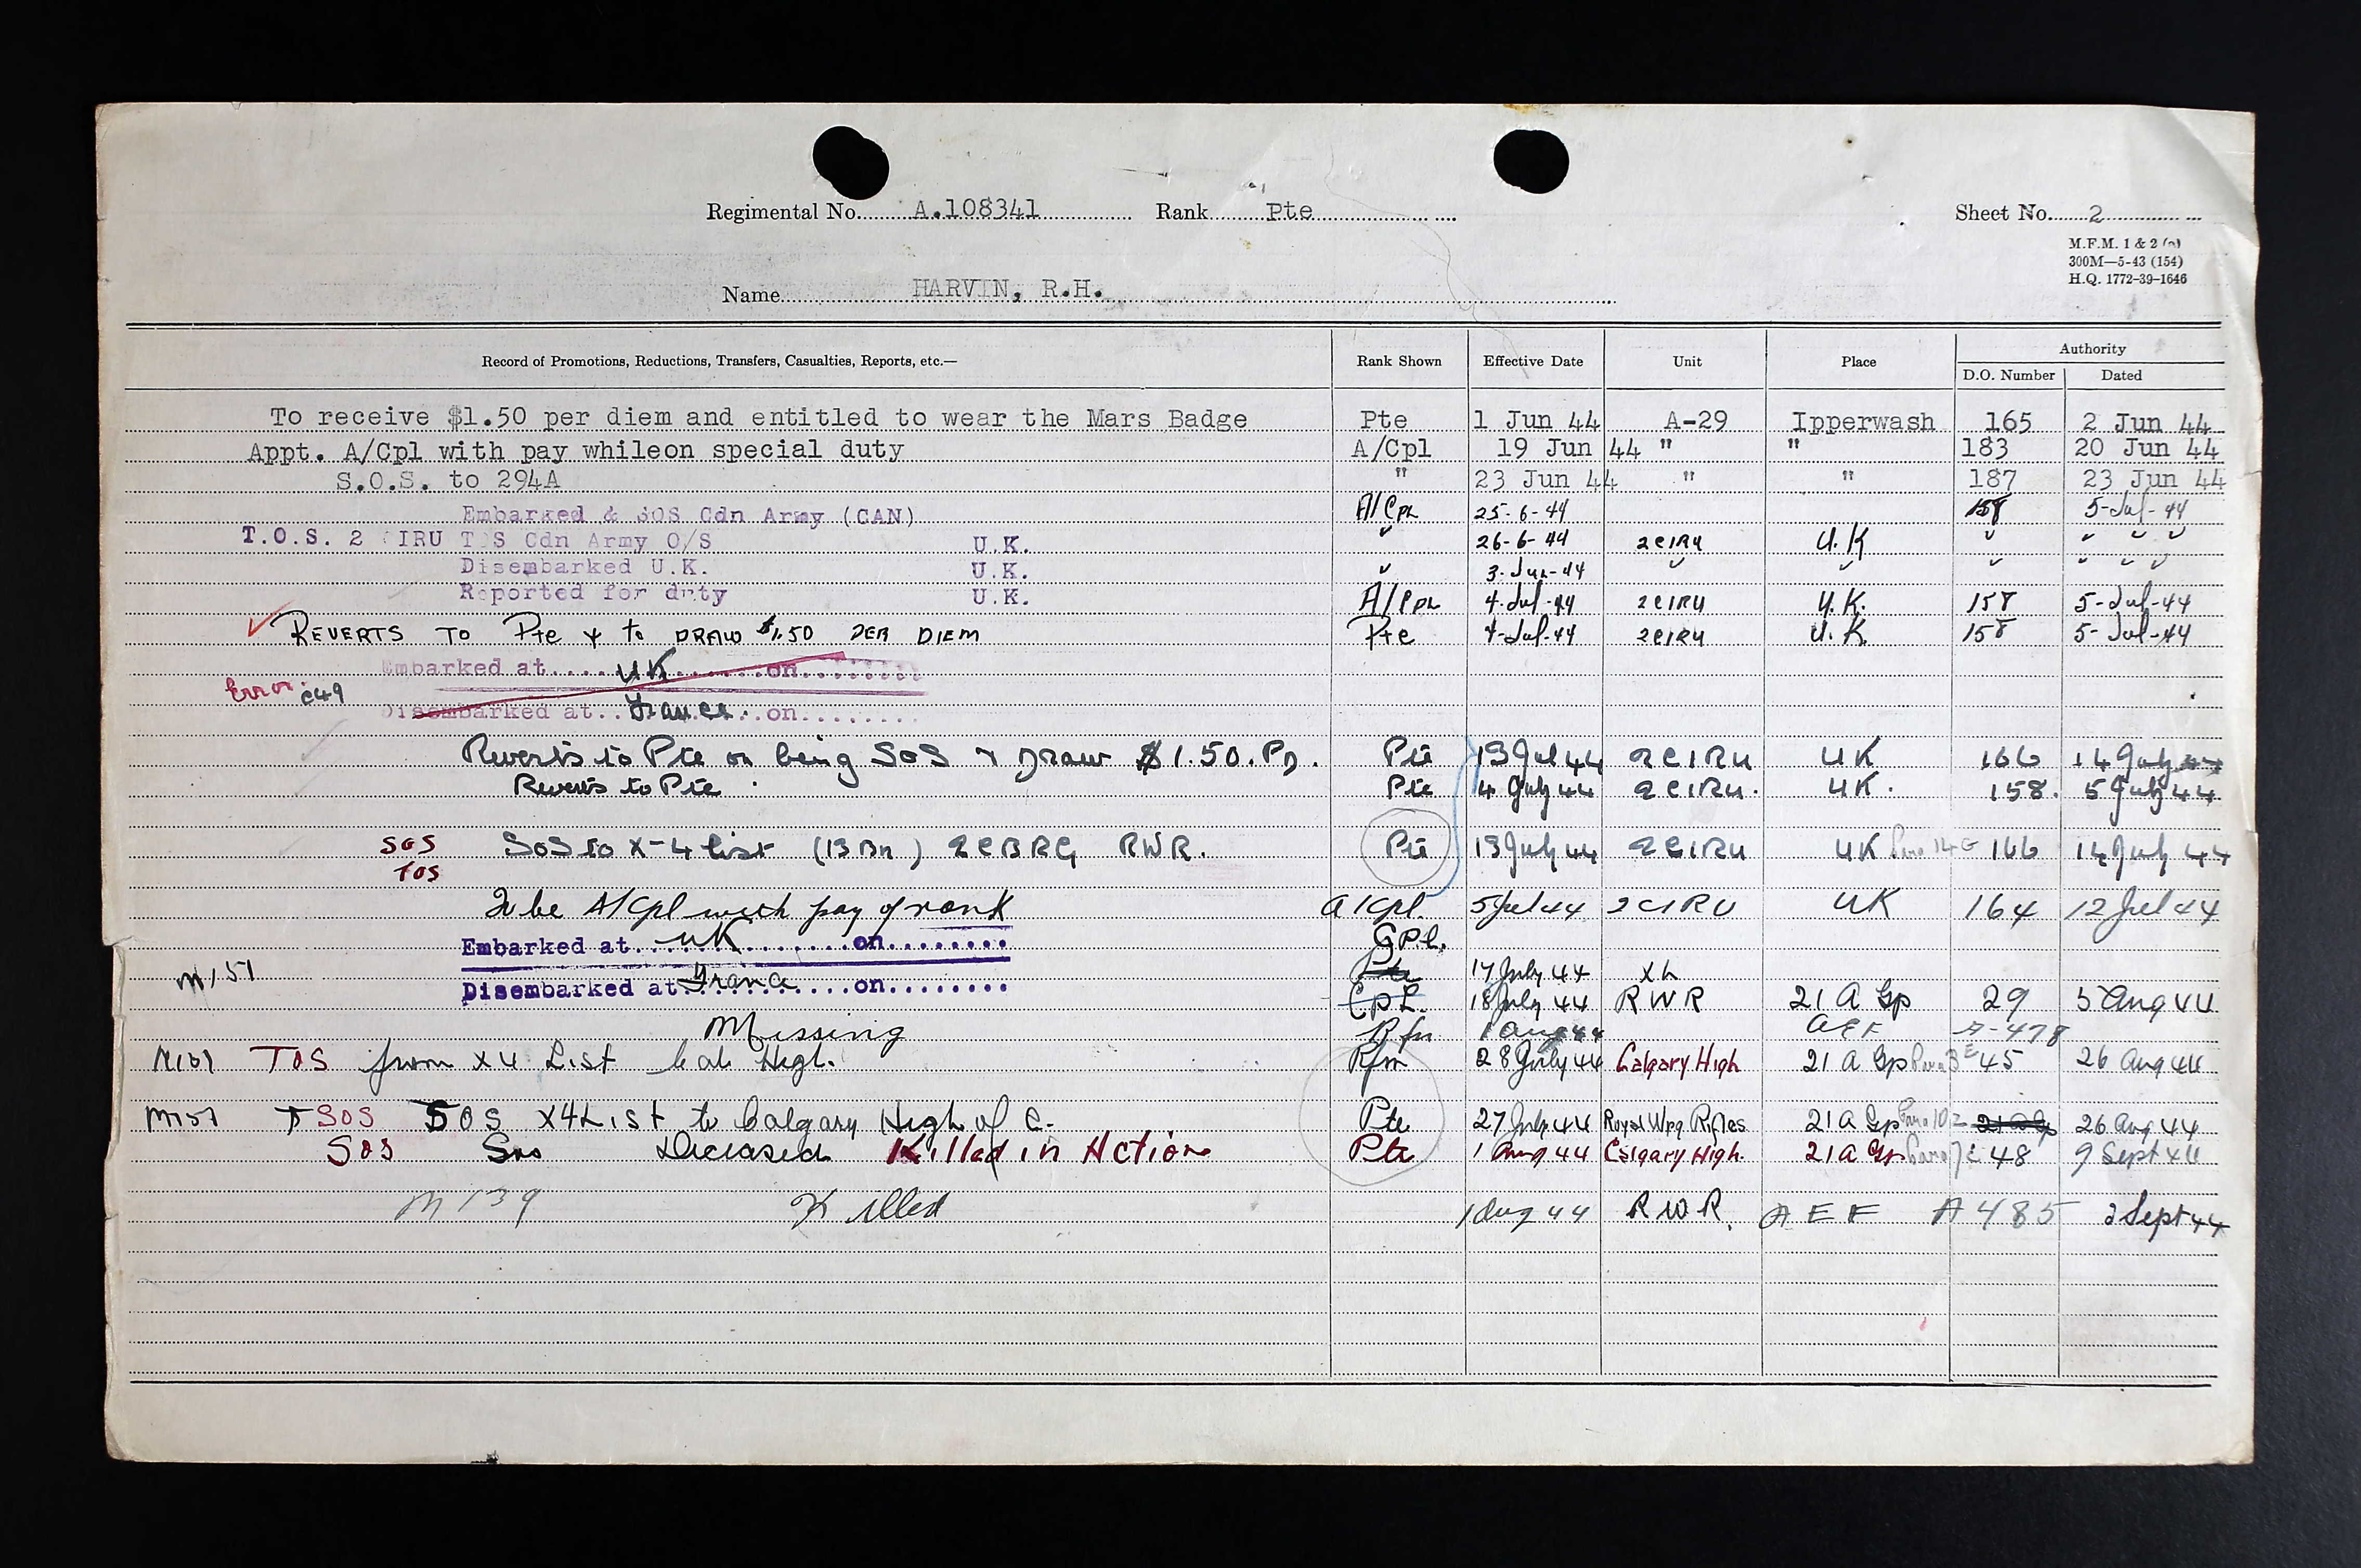 Regimental No. A.108341 Rank Pte Sheet No. 2
M.F.M. 1 & 2
300M—5-43 (154)
H.Q. 1772-39-1646
Name HARVIN, R.H.
Record of Promotions, Reductions, Transfers, Casualties, Reports, etc.— Rank Shown Effective Date Unit Place Authority
D.O. Number Dated
To receive $1.50 per diem and entitled to wear the Mars Badge Pte 1 Jun 44 A-29 Ipperwash 165 2 Jun 44
Appt. A/Cpl with pay whileon special duty A/Cpl 19 Jun 44 " " 183 20 Jun 44
S.O.S. to 294A " 23 Jun 44 " " 187 23 Jun 44
Embarked & SOS Cdn Army (CAN) A/Cpl 25-6-44 158 5-Jul-44
T.O.S. 2 CIRU TOS Cdn Army O/S U.K. " 26-6-44 2CIRU U.K " " " "
Disembarked U.K. U.K. " 3-Jul-44 " " " " " "
Reported for duty U.K. A/Cpl 4-Jul-44 2CIRU U.K. 158 5-Jul-44
REVERTS TO Pte & to DRAW $1.50 PER DIEM Pte 4-Jul-44 2CIRU U.K. 158 5-Jul-44
Embarked at....UK.......on........
Error. C49
Disembarked at..France...on........
Reverts to Pte on being SOS & Draw $1.50. PD. Pte 13 Jul 44 2CIRU UK 166 14 July 44
Reverts to Pte Pte 4 July 44 2CIRU. UK. 158. 5 July 44
SOS SOS to X-4 List (13 Bn) 2CBRG RWR. Pte 13 July 44 2CIRU UK Para 14 166 14 July 44
TOS
To be A/Cpl with pay of rank A/Cpl. 5 Jul 44 2CIRU UK 164 12 Jul 44
Embarked at...UK........on........ Cpl.
M151 Pte 17 July 44 XL
Disembarked at France....on........ Cpl. 18 July 44 RWR 21 A Gp 29 5 Aug 44
Missing Rfn 1 Aug 44 AEF A-478
TOS from X4 List Cal High. Rfm 28 July 44 Calgary High 21 A Gp Para 3 45 26 Aug 44
M151 SOS SOS X4 List to Calgary High of C. Pte 27 July 44 Royal Wpg Rifles 21 A Gp Para 10 26 Aug 44
SOS Sos Deceased Killed in Action Pte 1 Aug 44 Calgary High. 21 A Gp Para 7 48 9 Sept 44
M139 Killed 1 Aug 44 RWR. AEF A 485 2 Sept 44